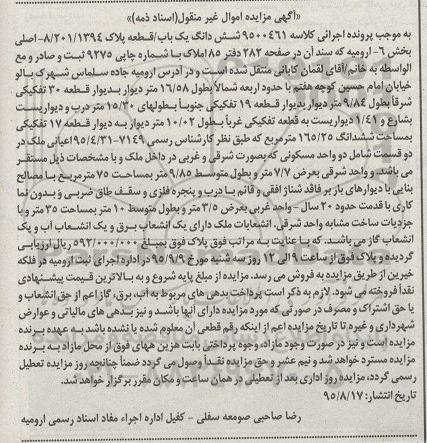 «آگهی مزایده اموال غیر منقول(اسناد ذمه)»
به موجب پرونده اجرائی کلاسه ۹۵۰۰۴۶۱ شش دانگ یک باب/قطعه پلاک ۸/۲۰۱/۱۳۹۴- اصلی
بخش ۶- ارومیه که سند آن در صفحه ۲۸۲ دفتر ۸۵ املاک با شماره چاپی ۹۲۷۵ ثبت و صادر و مع
الواسطه به خانم/آقای لقمان کایانی منتقل شده است و در آدرس ارومیه جاده سلماس شهرک سالو
خیابان امام حسین کوچه هفتم با حدود اربعه شمالاً بطول ۱۶/۵۸ متر دیوار بدیوار قطعه ۳۰ تفکیکی
شرقاً بطول ۹/۸۴ متر دیوار بدیوار قطعه ۱۹ تفکیکی جنوباً بطولهای ۱۵/۳۰ متر درب و دیواریست
بشارع و ۱/۴۱ دیواریست به قطعه تفکیکی غرباً بطول ۱۰/۰۲ متر دیوار به دیوار قطعه ۱۷ تفکیکی
بمساحت ششدانگ ۱۶۵/۲۵ مترمربع که طبق نظر کارشناس رسمی ۷۱۴۹-۹۵/۴/۳۱ اعیانی ملک در
دو قسمت شامل دو واحد مسکونی که بصورت شرقی و غربی در داخل ملک و با مشخصات ذیل مستقر
می باشند. و واحد شرقی بعرض ۷/۷ متر و بطول متوسط ۹/۸۵ متر بمساحت ۷۵ مترمربع با مصالح
بنایی با دیوارهای باربر فاقد شناژ افقی و قائم با درب و پنجره فلزی و سقف طاق ضربی و بدون نما
کاری با قدمت حدود ۲۰ سال - واحد غربی بعرض ۳/۵ متر و بطول متوسط ۱۰ متر بمساحت ۳۵ متر و با
جزئیات ساخت مشابه واحد شرقی. انشعابات ملک دارای یک انشعاب برق و یک انشعاب آب و یک
انشعاب گاز می باشد. که با عنایت به مراتب فوق پلاک فوق بمبلغ ۵۹۲/۰۰۰/۰۰۰ ریال ارزیابی
گردیده و پلاک فوق از ساعت ۹ الی ۱۲ روز سه شنبه مورخ ۹۵/۹/۹ در اداره اجرای ثبت ارومیه در فلکه
خیرین از طریق مزایده به فروش می رسد. مزایده از مبلغ پایه شروع و به بالاترین قیمت پیشنهادی
نقداً فروخته می شود. لازم به ذکر است پرداخت بدهی های مربوط به آب، برق، گاز اعم از حق انشعاب و
یا حق اشتراک و مصرف در صورتی که مورد مزایده دارای آنها باشد و نیز بدهی های مالیاتی و عوارض
شهرداری و غیره تا تاریخ مزایده اعم از اینکه رقم قطعی آن معلوم شده یا نشده باشد به عهده برنده
مزایده است و نیز در صورت وجود مازاد، وجوه پرداختی بابت هزین ههای فوق از محل مازاد به برنده
مزایده مسترد خواهد شد و نیم عشر و حق مزایده نقداً وصول می گردد ضمناً چنانچه روز مزایده تعطیل
رسمی گردد، مزایده روز اداری بعد از تعطیل در همان ساعت و مکان مقرر برگزار خواهد شد.
تاریخ انتشار: ۹۵/۸/۱۷
رضا صاحبی صومعه سفلی - کفیل اداره اجراء مفاد اسناد رسمی ارومیه